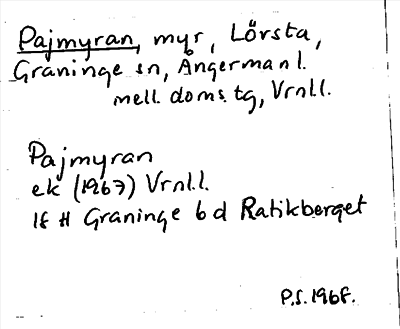 Pajmyran, myr, Lörsta,
Graninge sn, Ångermanl.
mell. doms. tg, Vrnl.l.
Pajmyran
ek (1967) Vrnl.l.
If H Graninge b d Ratikberget
P.S. 1968.